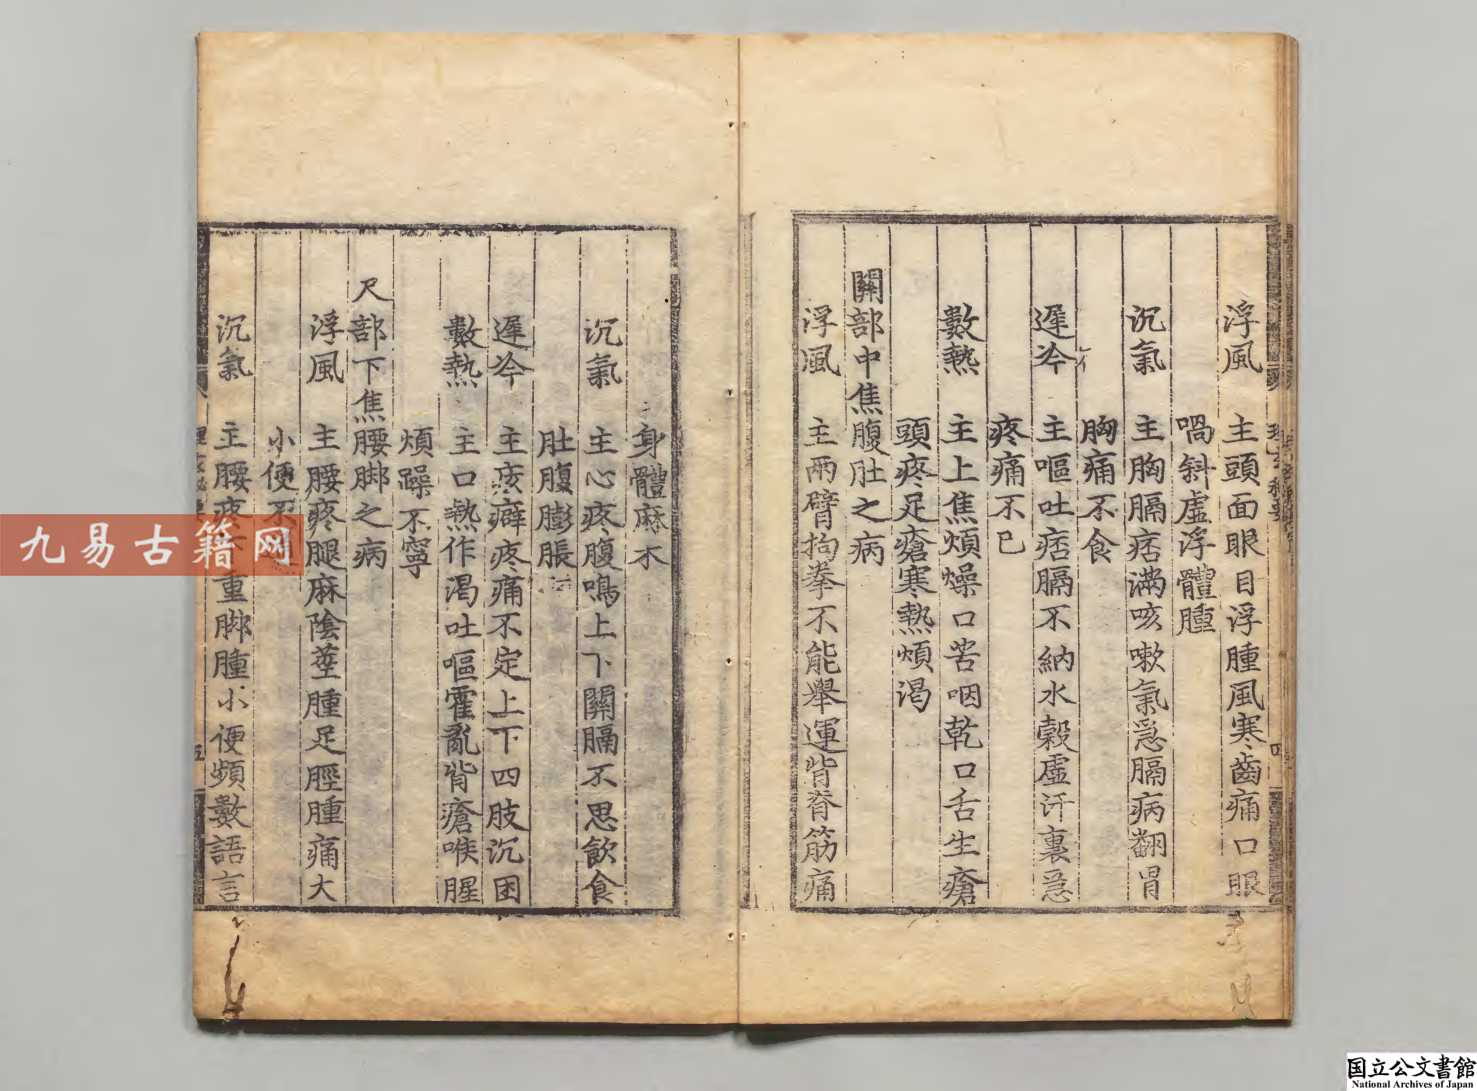 浮風　主頭面眼目浮腫風寒齒痛口眼
喎斜虛浮體腫
沉氣　主胸膈痞滿咳嗽氣急膈病翻胃
胸痛不食
遲冷　主嘔吐痞膈不納水穀虛汗裏急
疼痛不已
數熱　主上焦煩燥口苦咽乾口舌生瘡
頭疼足瘡寒熱煩渴
關部中焦腹肚之病
浮風　主兩臂拘拳不能舉運背脊筋痛
身體麻木
沉氣　主心疼腹鳴上下關膈不思飲食
肚腹膨脹
遲冷　主痃癖疼痛不定上下四肢沉困
數熱　主口熱作渴吐嘔霍亂背瘡喉腥
煩躁不寧
尺部下焦腰脚之病
浮風　主腰疼腿麻陰莖腫足脛腫痛大
小便不
沉氣　主腰疼重脚腫小便頻數語言
五
九易古籍网
国立公文書館
National Archives of Japan